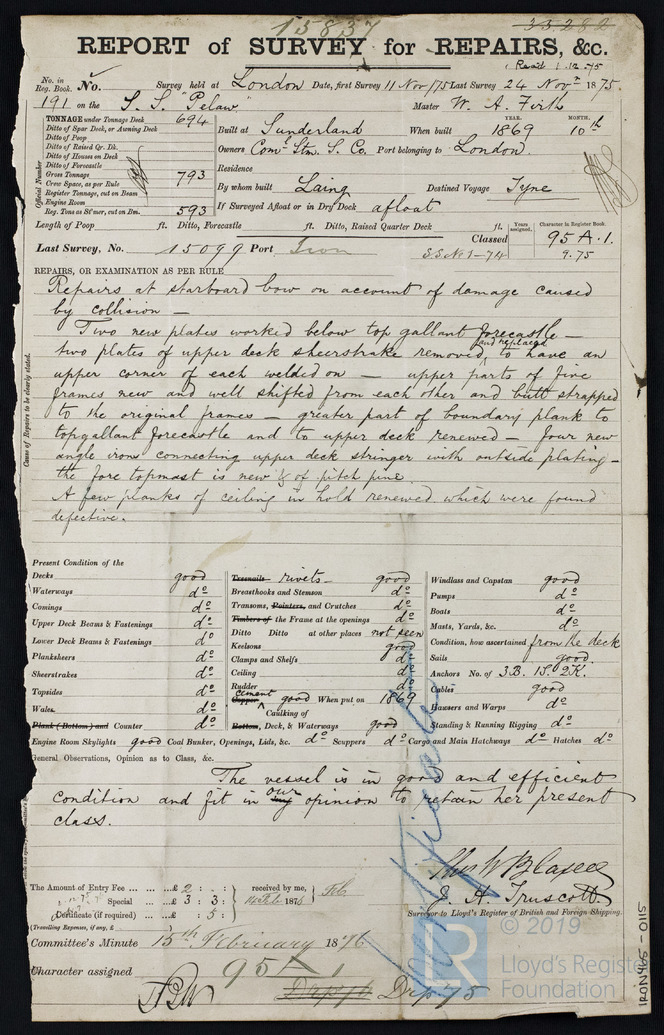 15837 33282
REPORT of SURVEY for REPAIRS, &c.
Rec'd 1.12.75
No. in Reg. Book. No. Survey held at London Date, first Survey 11 Nov /75 Last Survey 24 Novr 1875.
191 on the S. S. "Pelaw" Master W. A. Firth
TONNAGE under Tonnage Deck 694
Ditto of Spar Deck, or Awning Deck
Ditto of Poop
Ditto of Raised Qr. Dk.
Ditto of Houses on Deck
Ditto of Forecastle
Gross Tonnage 793
Crew Space, as per Rule
Register Tonnage, cut on Beam
Engine Room
Reg. Tons as St'mer, cut on Bm. 593
Official Number
Built at Sunderland When built YEAR. 1869 MONTH. 10th
Owners Coml Stm. S. Co. Port belonging to London
Residence
By whom built Laing Destined Voyage Tyne
If Surveyed Afloat or in Dry Dock afloat
Length of Poop ft. Ditto, Forecastle ft. Ditto, Raised Quarter Deck ft.
Last Survey, No. 15099 Port Iron Classed Years assigned. Character in Register Book. 95 A.1.
SS No 1-74 9.75
REPAIRS, OR EXAMINATION AS PER RULE
Cause of Repairs to be clearly stated.
Repairs at starboard bow on account of damage caused
by collision —
Two new plates worked below top gallant forecastle —
two plates of upper deck sheerstrake removed and replaced, to have an
upper corner of each welded on — upper parts of five
frames new and well shifted from each other and butt strapped
to the original frames — greater part of boundary plank to
topgallant forecastle and to upper deck renewed — four new
angle irons connecting upper deck stringer with outside plating —
the fore topmast is new & of pitch pine.
A few planks of ceiling in hold renewed which were found
defective.
Present Condition of the
Decks good
Waterways do
Comings do
Upper Deck Beams & Fastenings do
Lower Deck Beams & Fastenings do
Planksheers do
Sheerstrakes do
Topsides do
Wales do
Plank (Bottom) and Counter do
Treenails rivets good
Breasthooks and Stemson do
Transoms, Pointers, and Crutches do
Timbers of the Frame at the openings do
Ditto Ditto at other places not seen
Keelsons good
Clamps and Shelfs do
Ceiling do
Rudder do
Copper cement good When put on 1869
Caulking of
Bottom, Deck, & Waterways good
Windlass and Capstan good
Pumps do
Boats do
Masts, Yards, &c. do
Condition, how ascertained from the deck
Sails good
Anchors No. of 3B. 1S. 2K.
Cables good
Hawsers and Warps do
Standing & Running Rigging do
Engine Room Skylights good Coal Bunker, Openings, Lids, &c. do Scuppers do Cargo and Main Hatchways do Hatches do
General Observations, Opinion as to Class, &c.
The vessel is in good and efficient
condition and fit in my our opinion to retain her present
class.
The Amount of Entry Fee £ 2 : . :
Special £ 3 : 3 :
Certificate (if required) £ : 5 :
(Travelling Expenses, if any, £
received by me, Feb 1876
J. H. Truscott
Surveyor to Lloyd's Register of British and Foreign Shipping.
Committee's Minute 15th February 1876
Character assigned 95 A 1
Drp 76 Drp 75
© 2019
LR
Lloyd's Register
Foundation
IRON465-0115